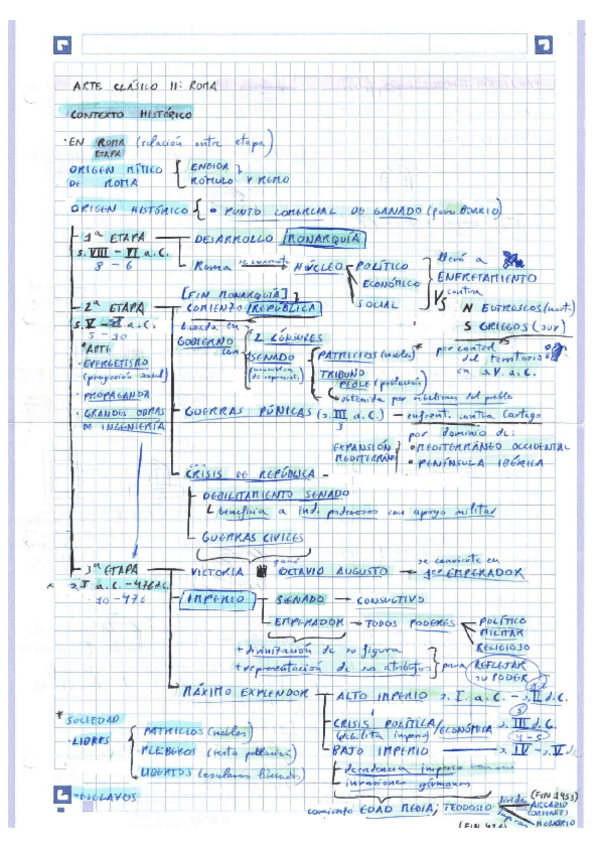 ARTE CLÁSICO II: ROMA
CONTEXTO HISTÓRICO
· EN ROMA (relación entre etapa)
ETAPA
ORIGEN MÍTICO DE ROMA { ENEIDA
RÓMULO Y REMO
ORIGEN HISTÓRICO { • PUNTO COMERCIAL DE GANADO (foro BOARIO)
1ª ETAPA — DESARROLLO MONARQUÍA
s. VIII - VI a.C.
8 - 6
Roma se convierte NÚCLEO POLÍTICO
ECONÓMICO
SOCIAL
llevó a
ENFRETAMIENTO
contra
VS N ETRUSCOS (nort.)
S GRIEGOS (sur)
[FIN MONARQUÍA]
2ª ETAPA — COMIENZO REPÚBLICA
s. V - I a.C.
basada en
GOBIERNO con 2 CÓNSULES
SENADO
PATRICIOS (nobles) *
TRIBUNO
PLEBE (población)
obtenida por rebeliones del pueblo
por control del territorio en s. V. a.C.
*ARTE
· EVERGETISMO
(proyección social)
· PROPAGANDA
· GRANDES OBRAS
DE INGENIERÍA
GUERRAS PÚNICAS (s. III a.C.) — enfrent. contra Cartago
3
por dominio de:
EXPANSIÓN MEDITERRÁN • MEDITERRÁNEO OCCIDENTAL
• PENÍNSULA IBÉRICA
CRISIS DE REPÚBLICA -
DEBILITAMIENTO SENADO
beneficia a ind. poderosos con apoyo militar
GUERRAS CIVILES
ganó
se convierte en
3ª ETAPA — VICTORIA OCTAVIO AUGUSTO → 1er EMPERADOR
s. I a.C. - 476 d.C.
IMPERIO — SENADO → CONSULTIVO
EMPERADOR → TODOS PODERES POLÍTICO
MILITAR
RELIGIOSO
+ divinización de su figura
+ representación de sus atributos
para REFLEJAR
SU PODER
MÁXIMO EXPLENDOR — ALTO IMPERIO s. I. a.C. - s. II d.C.
CRISIS POLÍTICA/ECONÓMICA s. III d.C.
(debilita imperio)
4-5
BAJO IMPERIO s. IV - s. V d.
* SOCIEDAD
· LIBRES { PATRICIOS (nobles)
PLEBEYOS (resto población)
LIBERTOS (esclavos liberados)
decadencia imperio romano
invasiones germanas
· ESCLAVOS
comienzo EDAD MEDIA; TEODOSIO divide
(FIN 1453)
ARCADIO
(ORIENTE)
HONORIO
(FIN 476)